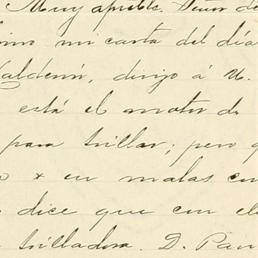 Muy apreble. Señor de
mi carta del día
Calderón, dirijo á U.
está el motor de
para trillar; pero
x en malas con
dice que con el
trilladora. D. Pan